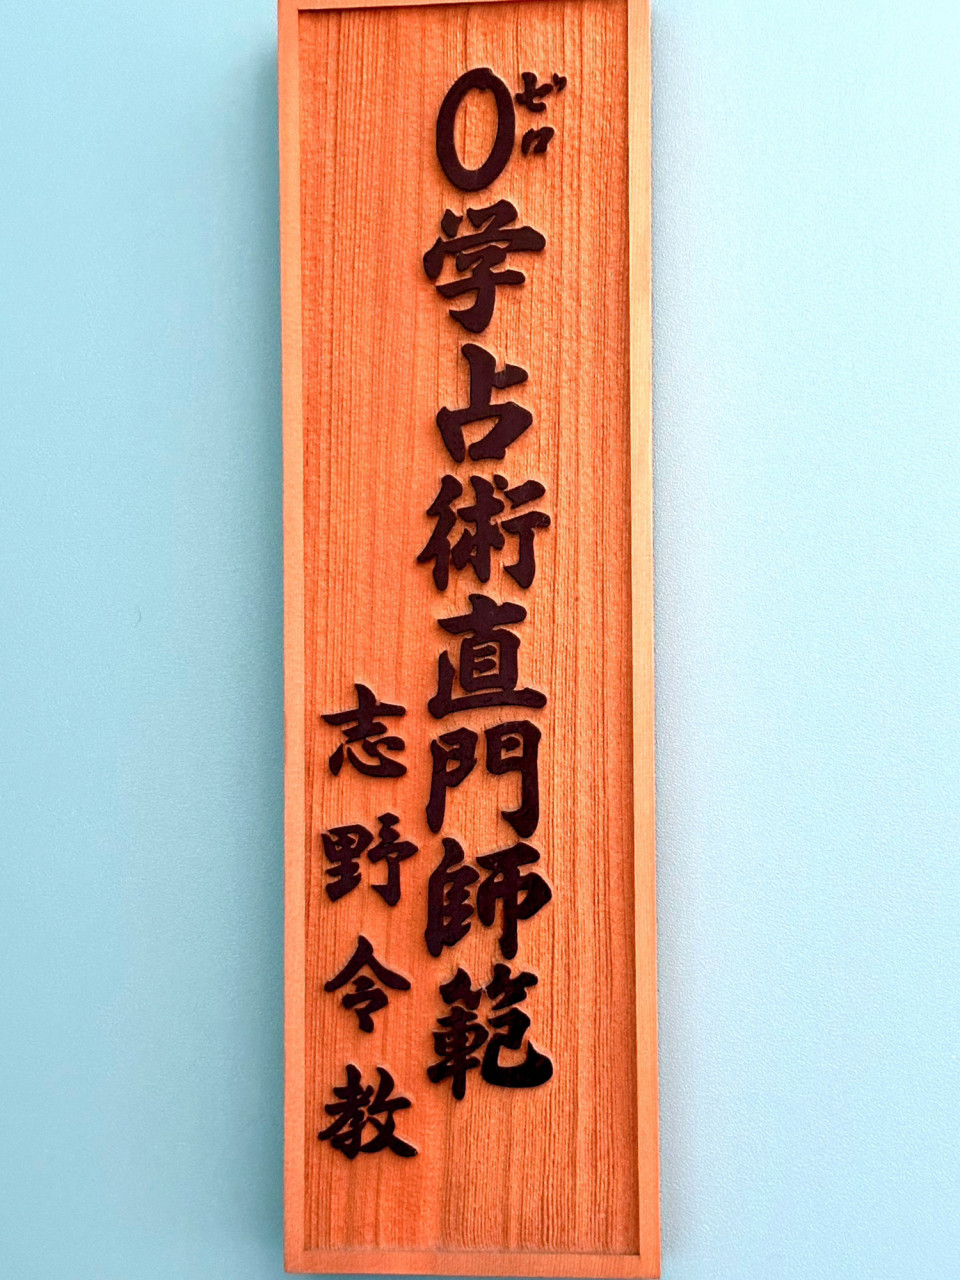 0学占術直門師範
ゼロ
志野令教